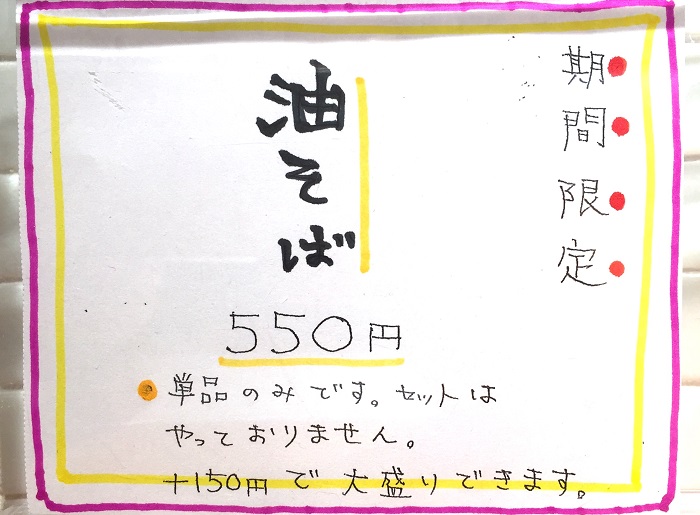 期間限定
油そば
550円
単品のみです。セットは
やっておりません。
+150円で大盛りできます。